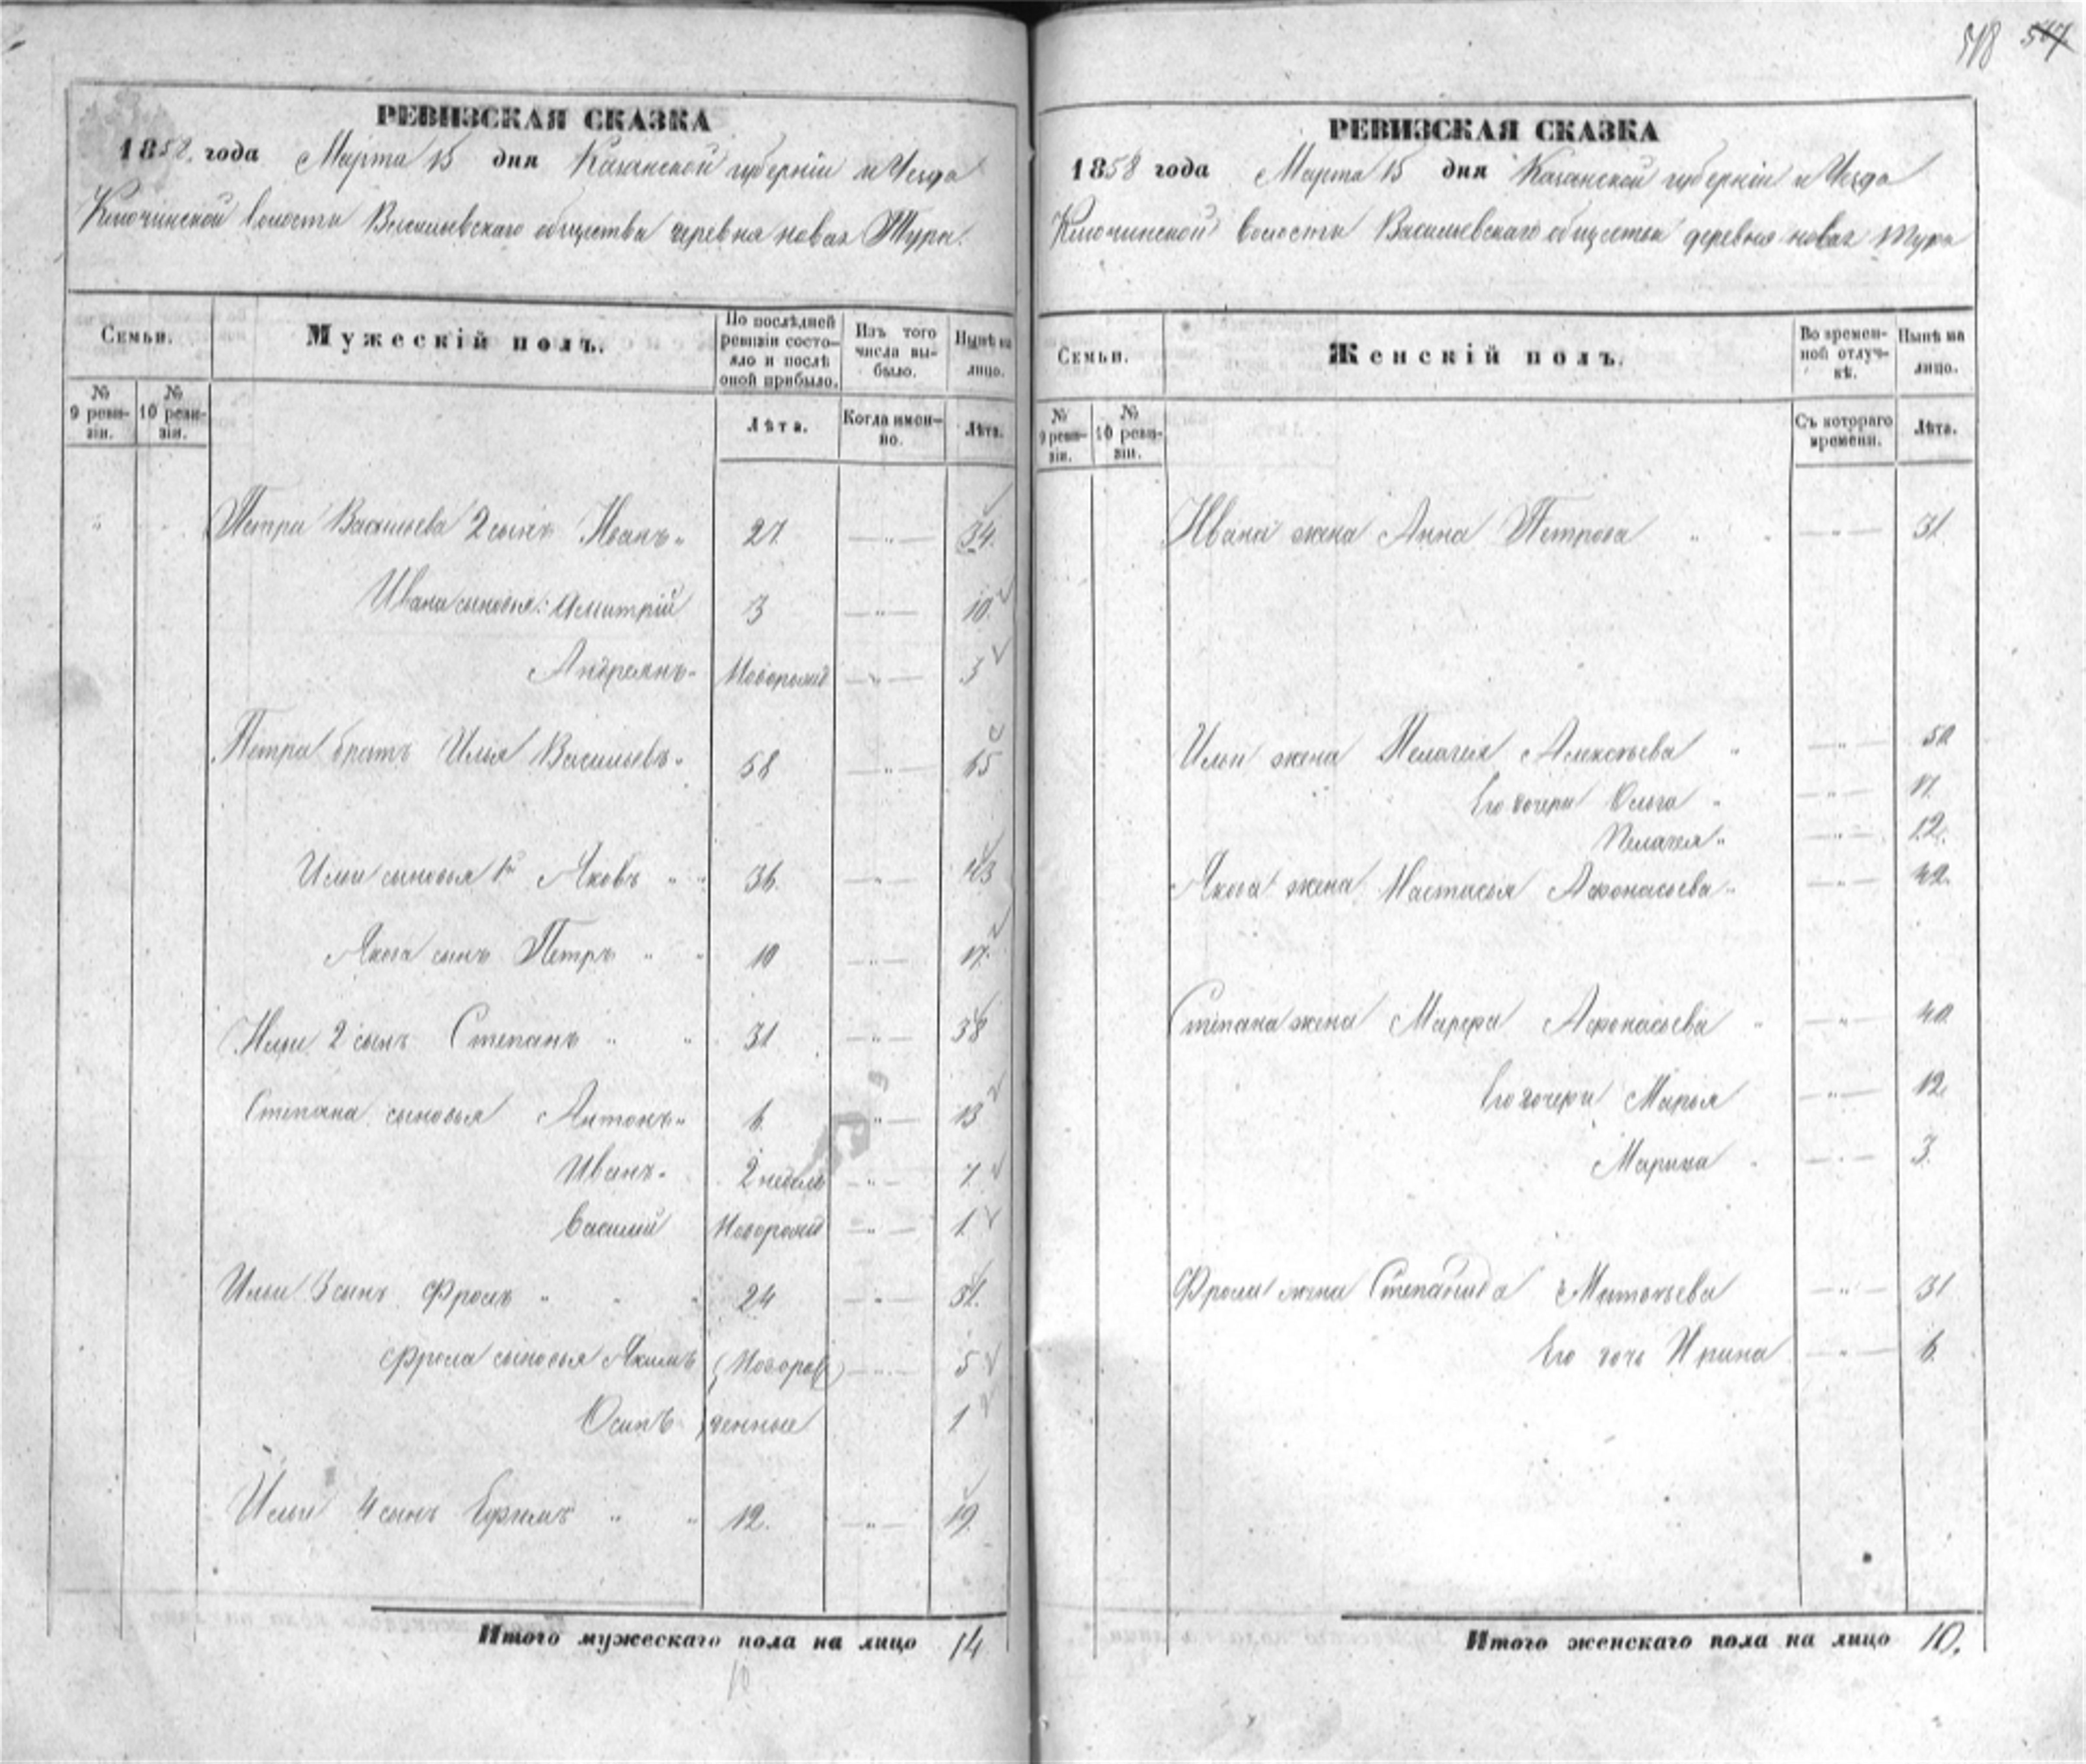 518 517
РЕВИЗСКАЯ СКАЗКА
1858 года Марта 15 дня Казанской губерніи и Уезда
Ключинской волости Васильевскаго общества деревня новая Тура.
Семьи.
Мужескій полъ.
По послѣдней ревизіи состояло и послѣ оной прибыло.
Изъ того числа выбыло.
Нынѣ на лицо.
№ 9 ревизіи.
№ 10 ревизіи.
Лѣта.
Когда именно.
Лѣта.
Петра Васильева 2 сынъ Иванъ 27 34.
Ивана сыновья: Дмитрій 3 10.
Андреянъ Новорожд 3
Петра братъ Илья Васильевъ 58 65
Ильи сыновья 1й Яковъ 36. 43
Якова сынъ Петръ 10 17.
Ильи 2 сынъ Степанъ 31 38
Степана сыновья Антонъ 6. 13
Иванъ 2 недели 7
Василий Новорожд 1.
Ильи 3 сынъ Фролъ 24 31.
Фрола сыновья Якимъ (Новорож) 5
Осипъ денные 1
Ильи 4 сынъ Ефимъ 12. 19.
Итого мужескаго пола на лицо 14
10
РЕВИЗСКАЯ СКАЗКА
1858 года Марта 15 дня Казанской губерніи и Уезда
Ключинской волости Васильевскаго общества деревня новая Тура
Семьи.
Женскій полъ.
Во временной отлучкѣ.
Нынѣ на лицо.
№ 9 ревизіи.
№ 10 ревизіи.
Съ котораго времени.
Лѣта.
Ивана жена Анна Петрова 31.
Ильи жена Пелагея Алексѣева 50
Его дочери Ольга 17.
Пелагея 12.
Якова жена Настасья Афонасьева 42.
Степана жена Марфа Афонасьева 40.
Его дочери Марья 12.
Марина 3.
Фрола жена Степанида Матвѣева 31
Его дочь Ирина 6.
Итого женскаго пола на лицо 10.